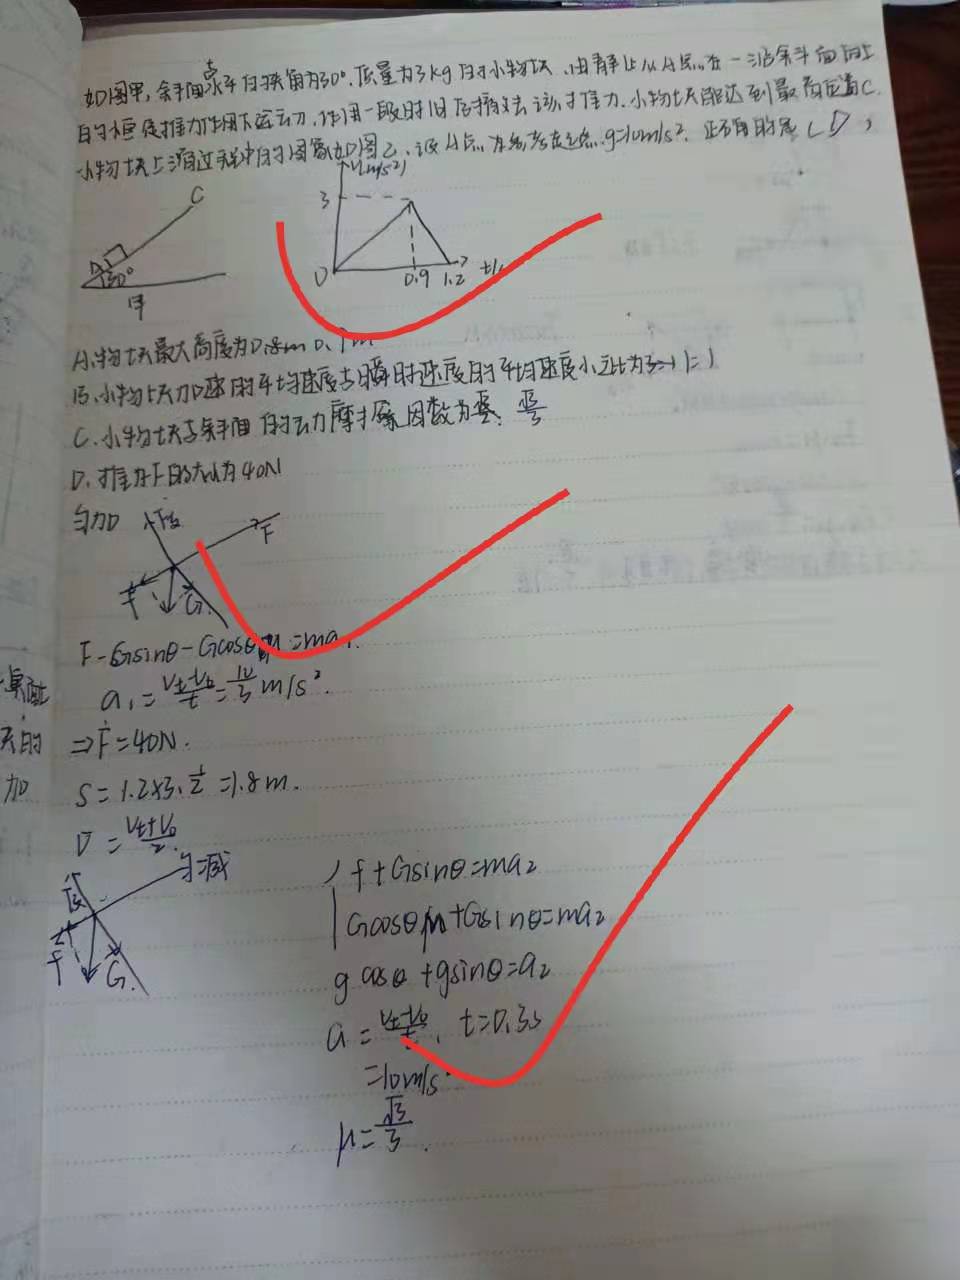 如图甲,斜面与水平的夹角为30°.质量为3kg的小物块,由静止从A点,在一沿斜面向上
的恒定推力作用下运动,作用一段时间后撤去该推力.小物块能达到最高位置C.
小物块上滑过程中的图象如图乙.设A点为参考点.g=10m/s².正确的是(D)
V(m/s²)
3
0
0.9 1.2 t/s
C
A
30°
甲
A.物块最大高度为0.8m 0.9m
B.小物块加速的平均速度与瞬时速度的平均速度小之比为3:1 1:1
C.小物块与斜面的动摩擦因数为 √3/3
D.推力F的大小为40N
匀加
F
f
G
F-Gsinθ-Gcosθμ=ma₁
a₁=(Vt-V₀)/t=10/3 m/s².
⇒F=40N.
S=1.2×3.1/2=1.8m.
V=(Vt+V₀)/2.
匀减
f
G.
f+Gsinθ=ma₂
Gcosθμ+Gsinθ=ma₂
gcosθ+gsinθ=a₂
a=(Vt-V₀)/t, t=0.3s
=10m/s²
μ=√3/3.